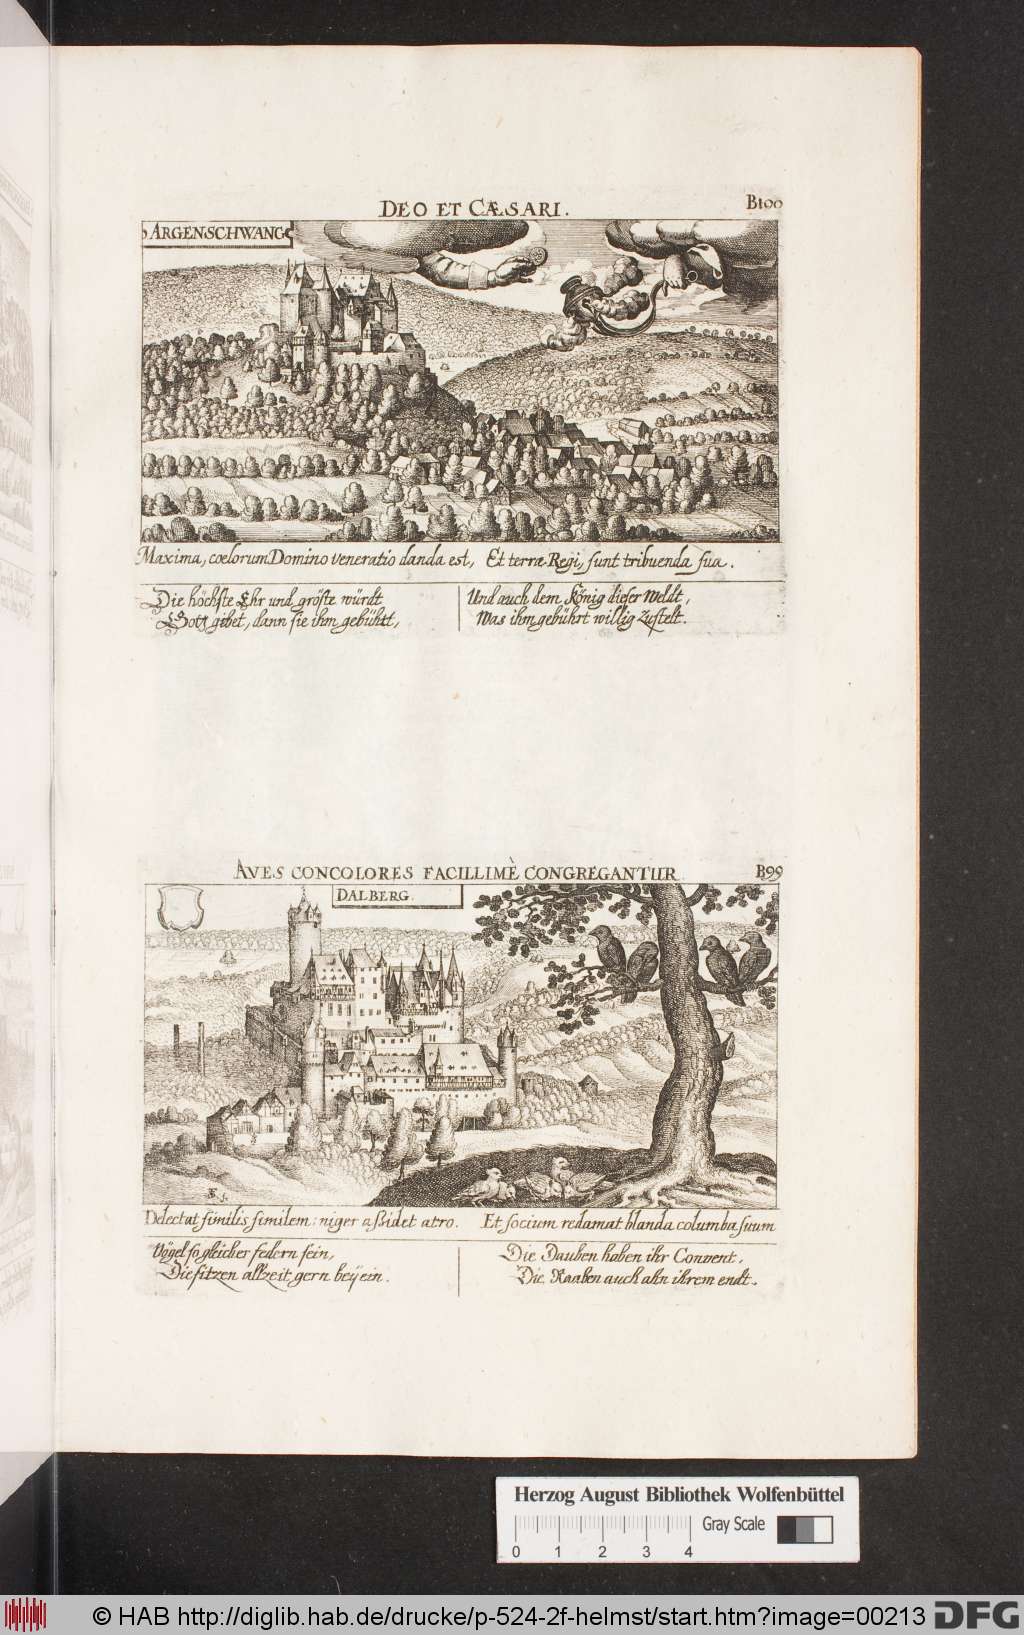 DEO ET CÆSARI.
B100
ARGENSCHWANG
Maxima, cœlorum Domino veneratio danda est, Et terræ Regi, sunt tribuenda sua.
Die höchste Ehr und gröste würdt
Gott gebet, dann sie ihm gebührt,
Und auch dem König dieser Weldt,
Was ihm gebührt willig zustelt.
AVES CONCOLORES FACILLIMÈ CONGREGANTUR.
B99
DALBERG.
Delectat similis similem: niger assidet atro. Et socium redamat blanda columba suum
Vögel so gleicher federn sein,
Die sitzen allzeit gern beÿ ein.
Die Dauben haben ihr Convent,
Die Raaben auch ahn ihrem endt.
Herzog August Bibliothek Wolfenbüttel
Gray Scale
0 1 2 3 4
© HAB http://diglib.hab.de/drucke/p-524-2f-helmst/start.htm?image=00213
DFG